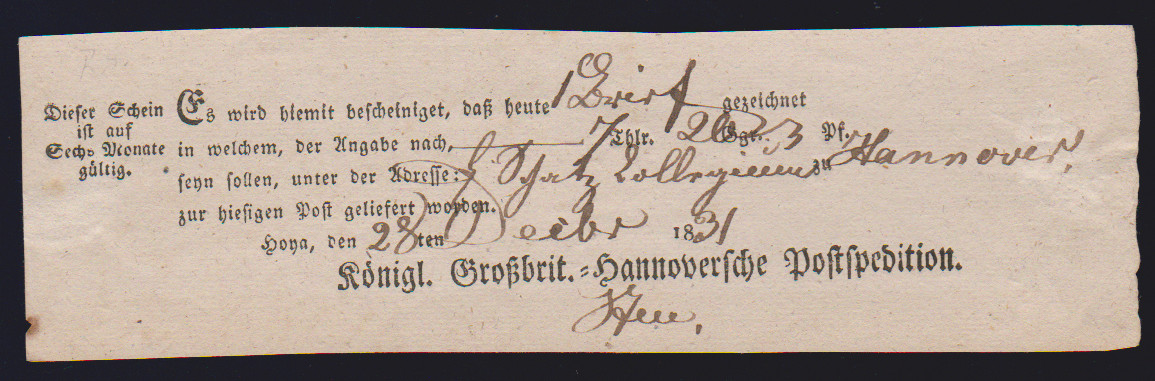 Dieser Schein
ist auf
Sechs Monate
gültig.
Es wird hiemit bescheiniget, daß heute 1 Brief gezeichnet
in welchem, der Angabe nach, 7 Thlr. 20 Ggr. 3 Pf.
seyn sollen, unter der Adresse: Schatz Collegium zu Hannover.
zur hiesigen Post geliefert worden.
Hoya, den 28ten Decbr 1831
Königl. Großbrit.=Hannoversche Postspedition.